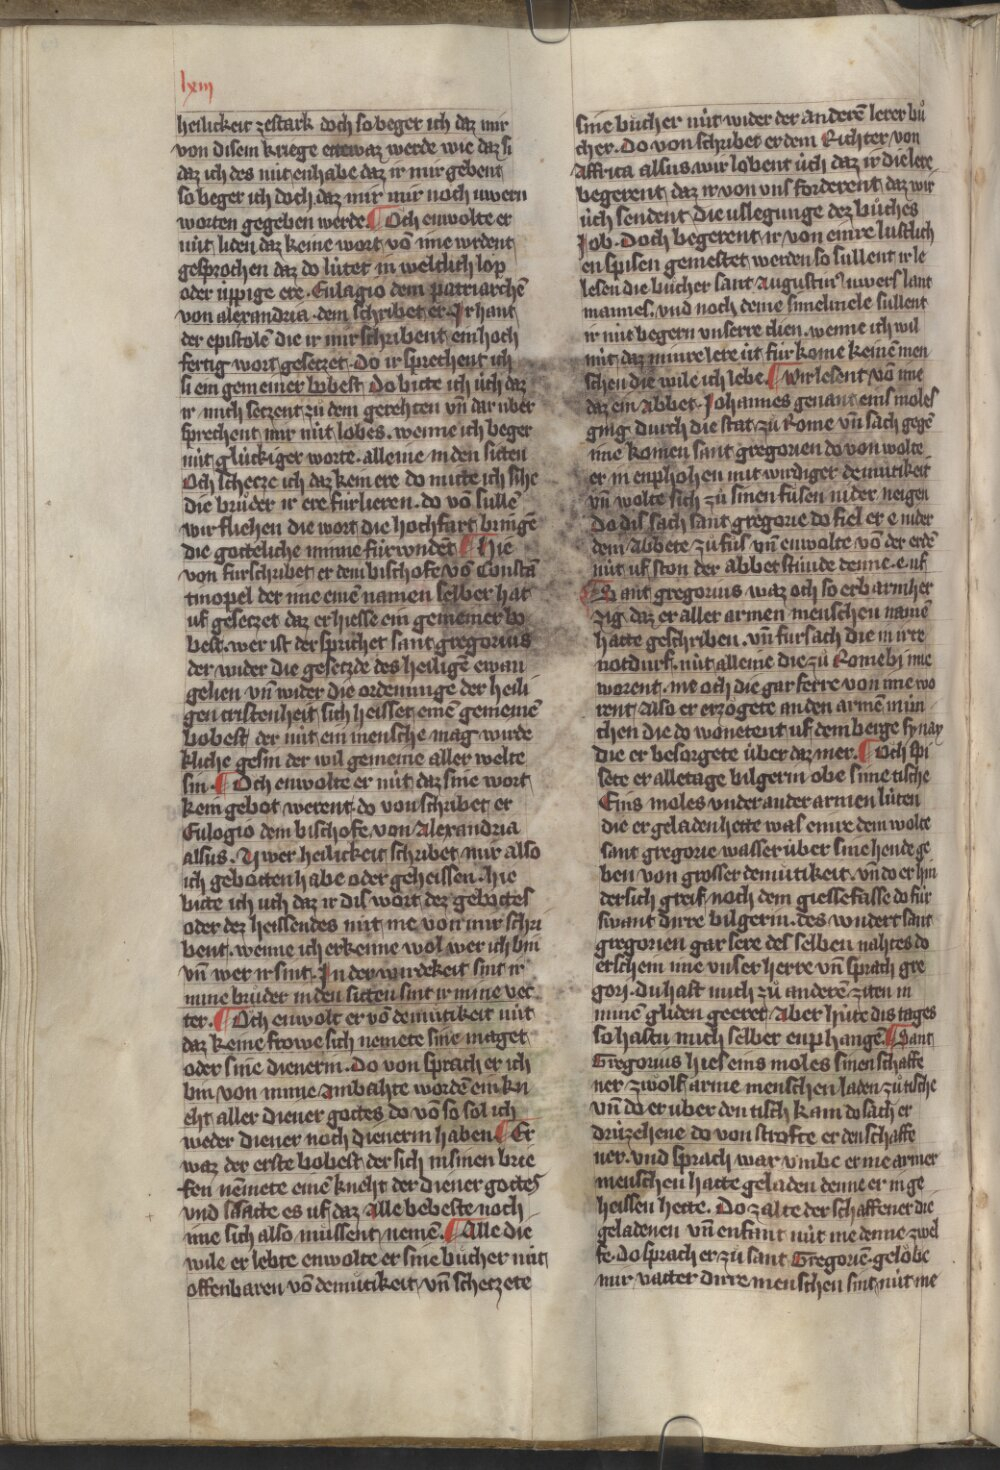 lxiii
heilickeit zestark doch so beger ich daz mir
von disem kriege ettewaz werde wie daz si
daz ich des nüt enhabe daz ir mir gebent
so beger ich doch daz mir nur noch uwern
worten gegeben werde. Och enwolte er
nüt liden daz keine wort vō ime wrdent
gesprochen daz do lütet in weltlich lop
oder üppige ere. Eulagio dem patriarchē
von alexandria. dem schribet er. Ir hant
der epistolē die ir mir schribent ein hoch
fertig wort gesetzet. Do ir sprechent ich
si ein gemeiner bobest Do bitte ich üch daz
ir mich setzent zů dem gerehten vn̄ dar uber
sprechent mir nüt lobes. wenne ich beger
nüt glückiger worte. alleine in den sitten
Och schetze ich daz kein ere do mitte ich sihe
die brůder ir ere fürlieren. do vō süllē
wir fliehen die wort die hochfart bringē
die gotteliche minne fürwndēt Hie
von fürschribet er dem bischofe vō Constā
tinopel der ime einē namen selber hat
uf gesetzet daz er hiesse ein gemeiner bo
best. wer ist der sprichet sant gregorius
der wider die gesetzde des heiligē ewan
gelien vn̄ wider die ordenunge der heili
gen cristenheit sich heisset einē gemeinē
bobest der nüt ein mensche mag wirde
kliche gesin der wil gemeine aller welte
sin. Och enwolte er nüt daz sine wort
kein gebot werent. do von schribet er
Eulogio dem bischofe von Alexandria
alsus. Uwer heilickeit schribet mir also
ich gebotten habe oder geheissen. hie
bitte ich üch daz ir dis wort dez gebottes
oder dez heissendes nüt me von mir schri
bent. wenne ich erkenne wol wer ich bin
vn̄ wer ir sint. In der wirdekeit sint ir
mine brůder in den sitten sint ir mine vet
ter. Och enwolt er vō demůtikeit nüt
daz keine frowe sich nemete sine maget
oder sine dienerin. Do von sprach er ich
bin von mime Ambahte wordē ein kn
eht aller diener gottes do vō so sol ich
weder diener noch dienerin haben Er
waz der erste bobest der sich in sinen brie
fen nēmete einē kneht der diener gottes
und saste es uf daz Alle bebeste noch
ime sich also müssent nemē. Alle die
wile er lebte enwolte er sine bücher nüt
offenbaren vō demůtikeit vn̄ schetzete
sine bücher nüt wider der anderē lerer bů
cher. Do von schribet er dem Richter von
Affrica alsus. wir lobent üch daz ir die lere
begerent daz ir von uns forderent daz wir
üch sendent die uslegunge dez bůches
Job. Doch begerent ir von einre lustlich
en spisen gemestet werden so sullent ir le
lesen die bücher sant Augustin' uwers lant
mannes. und noch deme simelmele sullent
ir nüt begern unserre clien. wenne ich wil
nüt daz minre lere üt für kome keinē men
schen die wile ich lebe. Wir lesent vō ime
daz ein Abbet. Johannes genant eins moles
ging durch die stat zů Rome vn̄ sach gegē
ime komen sant gregorien do von wolte
er in enphohen mit wirdiger demůtikeit
vn̄ wolte sich zů sinen fůsen nider neigen
Do dis sach sant gregorie do fiel er e nider
dem Abbete zů fůs vn̄ enwolte vō der erdē
nüt uf ston der abbet stůnde denne. e uf
Sant gregorius waz och so erbarmher
zig daz er aller armen menschen namē
hatte geschriben. vn̄ fürsach die in irre
notdurf. nüt alleine die zů Rome bi ime
worent. me och die gar ferre von ime wo
rent Also er erzögete an den armē mün
chen die do wonetent uf dem berge synay
die er besorgete über daz mer. Och spi
sete er alle tage bilgerin obe sinne tische
Eins moles under ander armen lüten
die er geladen hette was einre dem wolte
sant gregorie wasser über sine hende ge
ben von grosser demůtikeit. vn̄ do er hin
derlich greif noch dem giessefasse do für
swant dirre bilgerin. des wndert sant
gregorien gar sere des selben nahtes do
erschein ime unser herre vn̄ sprach gre
gori. du hast mich zů anderē ziten in
minē gliden geeret Aber hüte dis tages
so hastu mich selber enphangē. Sant
Gregorius hies eins moles sinen schaffe
ner zwölf arme menschen laden zů tische
vn̄ do er uber den tisch kam do sach er
drüzehene do von strofte er den schaffe
ner. und sprach war umbe er me armer
menschen hatte geladen denne er in ge
heissen hette. Do zalte der schaffener die
geladenen vn̄ enfant nüt me denne zwel
fe. Do sprach er zů sant Gregoriē. gelöbe
mir vatter dirre menschen sint nüt me